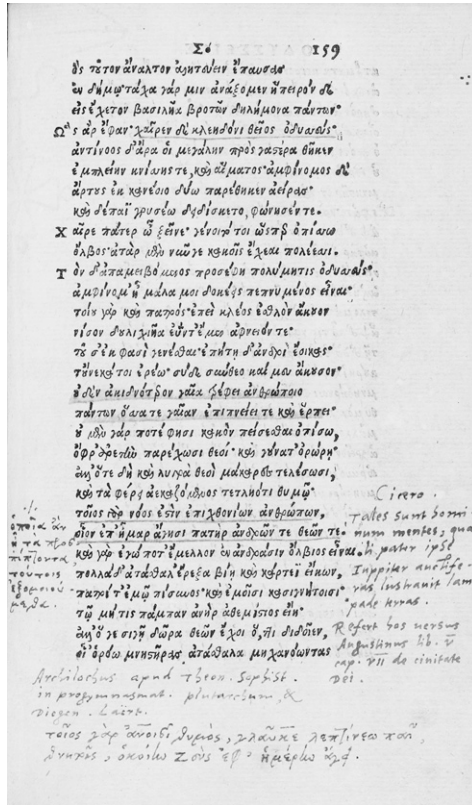 Σ. 159
ὃς τοῦτον ἄναλτον ἀλητεύειν ἀπέπαυσας
ἐν δήμῳ· τάχα γάρ μιν ἀνάξομεν ἤπειρόν δε
εἰς ἔχετον βασιλῆα βροτῶν δηλήμονα πάντων·
Ὣς ἄρ ἔφαν· χαῖρεν δὲ κλεηδόνι θεῖος ὀδυσσεύς·
ἀντίνοος δ' ἄρα οἱ μεγάλην πρὸς γαστέρα θῆκεν
ἐμπλείην κνίσης τε, καὶ αἵματος· ἀμφίνομος δὲ
ἄρτους ἐκ κανέοιο δύω παρέθηκεν ἀείρας·
καὶ δέπαϊ χρυσέῳ δειδίσκετο, φώνησέν τε.
Χαῖρε πάτερ ὦ ξεῖνε· γένοιτό τοι ὥς περ ὀπίσσω
ὄλβος· ἀτὰρ μὲν νῦν γε κακοῖς ἔχεαι πολέεσσι.
Τὸν δ' ἀπαμειβόμενος προσέφη πολύμητις ὀδυσσεύς·
ἀμφίνομ' ἦ μάλα μοι δοκέεις πεπνυμένος εἶναι·
τοίου γὰρ καὶ πατρὸς· ἐπεὶ κλέος ἐσθλὸν ἄκουον
νίσον δουλιχιῆα ἐΰντ' ἔμεν ἀφνειόν τε·
τοῦ σ' ἔκ φασὶ γενέσθαι· ἐπητῇ δ' ἀνδρὶ ἔοικας·
τοὔνεκά τοι ἐρέω· σὺ δὲ σύνθεο καί μευ ἄκουσον·
οὐδὲν ἀκιδνότερον γαῖα τρέφει ἀνθρώποιο
πάντων ὅσσά τε γαῖαν ἐπιπνείει τε καὶ ἕρπει·
οὐ μὲν γάρ ποτέ φησι κακὸν πείσεσθαι ὀπίσσω,
ὄφρ' ἀρετὴν παρέχωσι θεοὶ καὶ γούνατ' ὀρώρῃ·
ἀλλ' ὅτε δὴ καὶ λυγρὰ θεοὶ μάκαρες τελέσωσι,
καὶ τὰ φέρει ἀεκαζόμενος τετληότι θυμῷ·
τοῖος γὰρ νόος ἐστὶν ἐπιχθονίων ἀνθρώπων,
οἷον ἐπ' ἦμαρ ἄγησι πατὴρ ἀνδρῶν τε θεῶν τε·
καὶ γὰρ ἐγώ ποτ' ἔμελλον ἐν ἀνδράσιν ὄλβιος εἶναι·
πολλὰ δ' ἀτάσθαλ' ἔρεξα βίῃ καὶ κάρτεϊ εἴκων,
πατρί τ' ἐμῷ πίσυνος καὶ ἐμοῖσι κασιγνήτοισι·
τῷ μή τις πάμπαν ἀνὴρ ἀθεμίστιος εἴη·
ἀλλ' ὅγε σιγῇ δῶρα θεῶν ἔχοι ὅ,τι διδοῖεν,
οἷ' ὁρόω μνηστῆρας ἀτάσθαλα μηχανόωντας
ὁποῖα ἂν
ᾖ τὰ προσ
πίπτοντα
τούτοις
ἐξομοιού
μεθα.
Cicero.
Tales sunt homi
num mentes, qua
li pater ipse
Iuppiter auctife
ras lustrauit lam
pade terras.
Refert hos uersus
Augustinus lib. v
cap. VII de ciuitate
Dei.
Archilochus apud Theon. Sophist.
in progymnasmat. plutarchum, &
Diogen. Laërt.
τοῖος γὰρ ἀνθρώποισι θυμὸς, γλαῦκε λεπτίνεω παῖ,
θνητοῖς, ὁκοίην Ζεὺς ἐφ' ἡμέρην ἄγῃ.